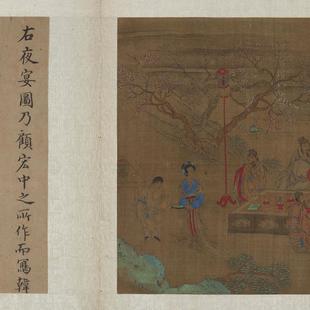 右夜宴圖乃顧宏中之所作而寫韓